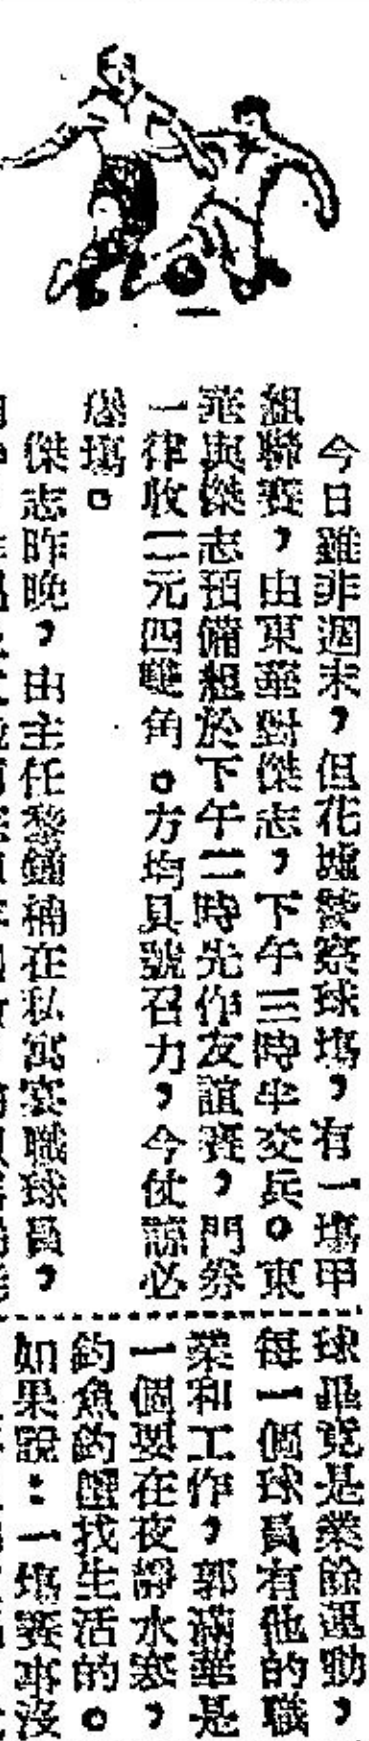 今日雖非週末，但花墟警察球塲，有一塲甲
組聯賽，由東華對傑志，下午三時半交兵。東
華與傑志預備組於下午二時先作友誼賽，門券
一律收二元四雙角。方均具號召力，今仗諒必
塲。
傑志昨晚，由主任黎鐘楠在私寓宴職球員，
球畢竟是業餘運動，
每一個球員有他的職
業和工作，郭滿華是
一個要在夜靜水寒，
釣魚釣蟶找生活的。
如果說：一塲賽事沒